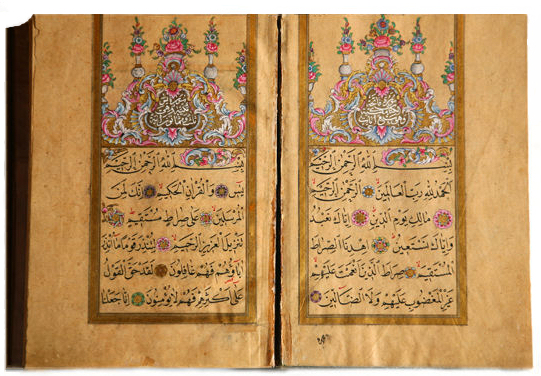 بِسْمِ اللهِ الرَّحْمٰنِ الرَّحِيمِ
اَلْحَمْدُ لِلّٰهِ رَبِّ الْعَالَمِينَ الرَّحْمٰنِ الرَّحِيمِ
مَالِكِ يَوْمِ الدِّينِ اِيَّاكَ نَعْبُدُ
وَاِيَّاكَ نَسْتَعِينُ اِهْدِنَا الصِّرَاطَ
الْمُسْتَقِيمَ صِرَاطَ الَّذِينَ اَنْعَمْتَ عَلَيْهِمْ
غَيْرِ الْمَغْضُوبِ عَلَيْهِمْ وَلَا الضَّالِّينَ
بِسْمِ اللهِ الرَّحْمٰنِ الرَّحِيمِ
يٰسٓ وَالْقُرْاٰنِ الْحَكِيمِ اِنَّكَ لَمِنَ
الْمُرْسَلِينَ عَلٰى صِرَاطٍ مُسْتَقِيمٍ
تَنْزِيلَ الْعَزِيزِ الرَّحِيمِ لِتُنْذِرَ قَوْمًا مَا اُنْذِرَ
اٰبَاؤُهُمْ فَهُمْ غَافِلُونَ لَقَدْ حَقَّ الْقَوْلُ
عَلٰى اَكْثَرِهِمْ فَهُمْ لَا يُؤْمِنُونَ اِنَّا جَعَلْنَا